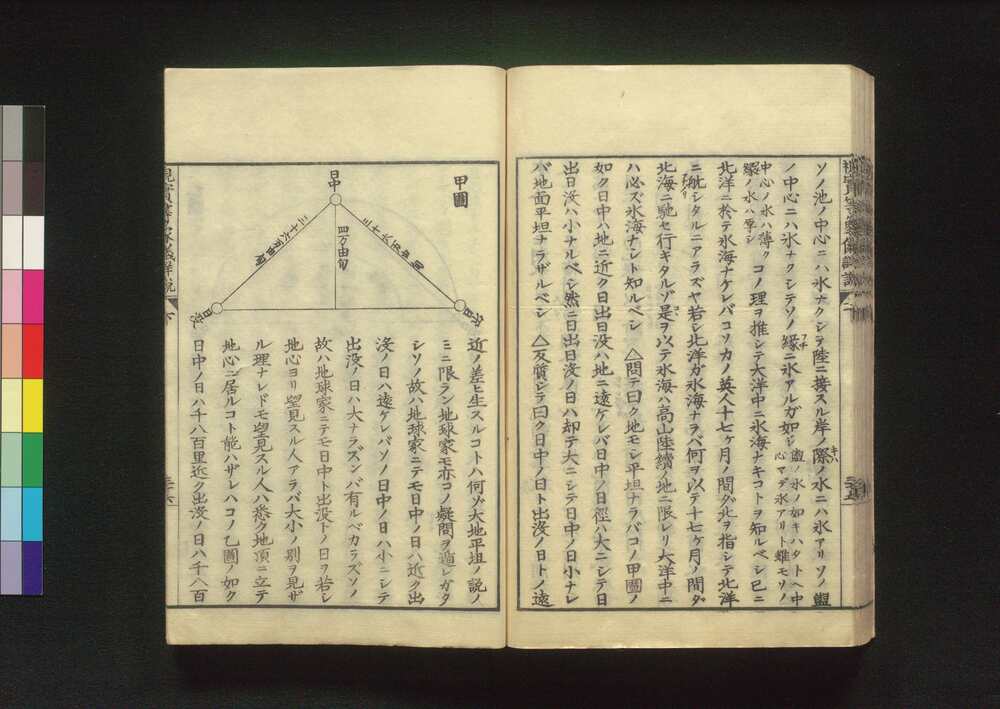 ソノ池ノ中心ニハ氷ナクシテ陸ニ接スル岸ノ際ノ水ニハ氷アリソノ盥
ノ中心ニハ氷ナクシテソノ縁ニ氷アルガ如シ盥ノ水ノ如キハタトヘ中
心マデ氷アリト雖モソノ
中心ノ氷ハ薄ク
縁ノ氷ハ厚シ
コノ理ヲ推シテ大洋中ニ氷海ナキコトヲ知ルベシ已ニ
北洋ニ於テ氷海ナケレバコソカノ英人十七ケ月ノ間ダ北ヲ指シテ北洋
ニ航シタルニアラズヤ若シ北洋ガ氷海ナラバ何ヲ以テ十七ケ月ノ間ダ
北海ニ馳セ行ギタルゾ是ヲ以テ氷海ハ高山陸續ノ地ニ限レリ大洋中ニ
ハ必ズ氷海ナシト知ルベシ △問テ曰ク地モシ平坦ナラバコノ甲圖ノ
如ク日中ハ地ニ近ク日出日没ハ地ニ遠ケレバ日中ノ日徑ハ大ニシテ日
出日没ハ小ナルベシ然ニ日出日没ノ日ハ却テ大ニシテ日中ノ日小ナレ
バ地面平坦ナラザルベシ △反質シテ曰ク日中ノ日ト出没ノ日トノ遠
甲圖
日中
四万由旬
日没
近ノ差ヒ生スルコトハ何ゾ大地平坦ノ説ノ
ミニ限ラン地球家モ亦コノ疑問ヲ遁レガタ
シソノ故ハ地球家ニテモ日中ノ日ハ近ク出
没ノ日ハ遠ケレバソノ日中ノ日ハ小ニシテ
出没ノ日ハ大ナラズンバ有ルベカラズソノ
故ハ地球家ニテモ日中ト出没トノ日ヲ若シ
地心ヨリ望見スル人アラバ大小ノ別ヲ見ザ
ル理ナレドモ望見スル人ハ悉ク地頂ニ立テ
地心ニ居ルコト能ハザレハコノ乙圖ノ如ク
日中ノ日ハ千八百里近ク出没ノ日ハ千八百